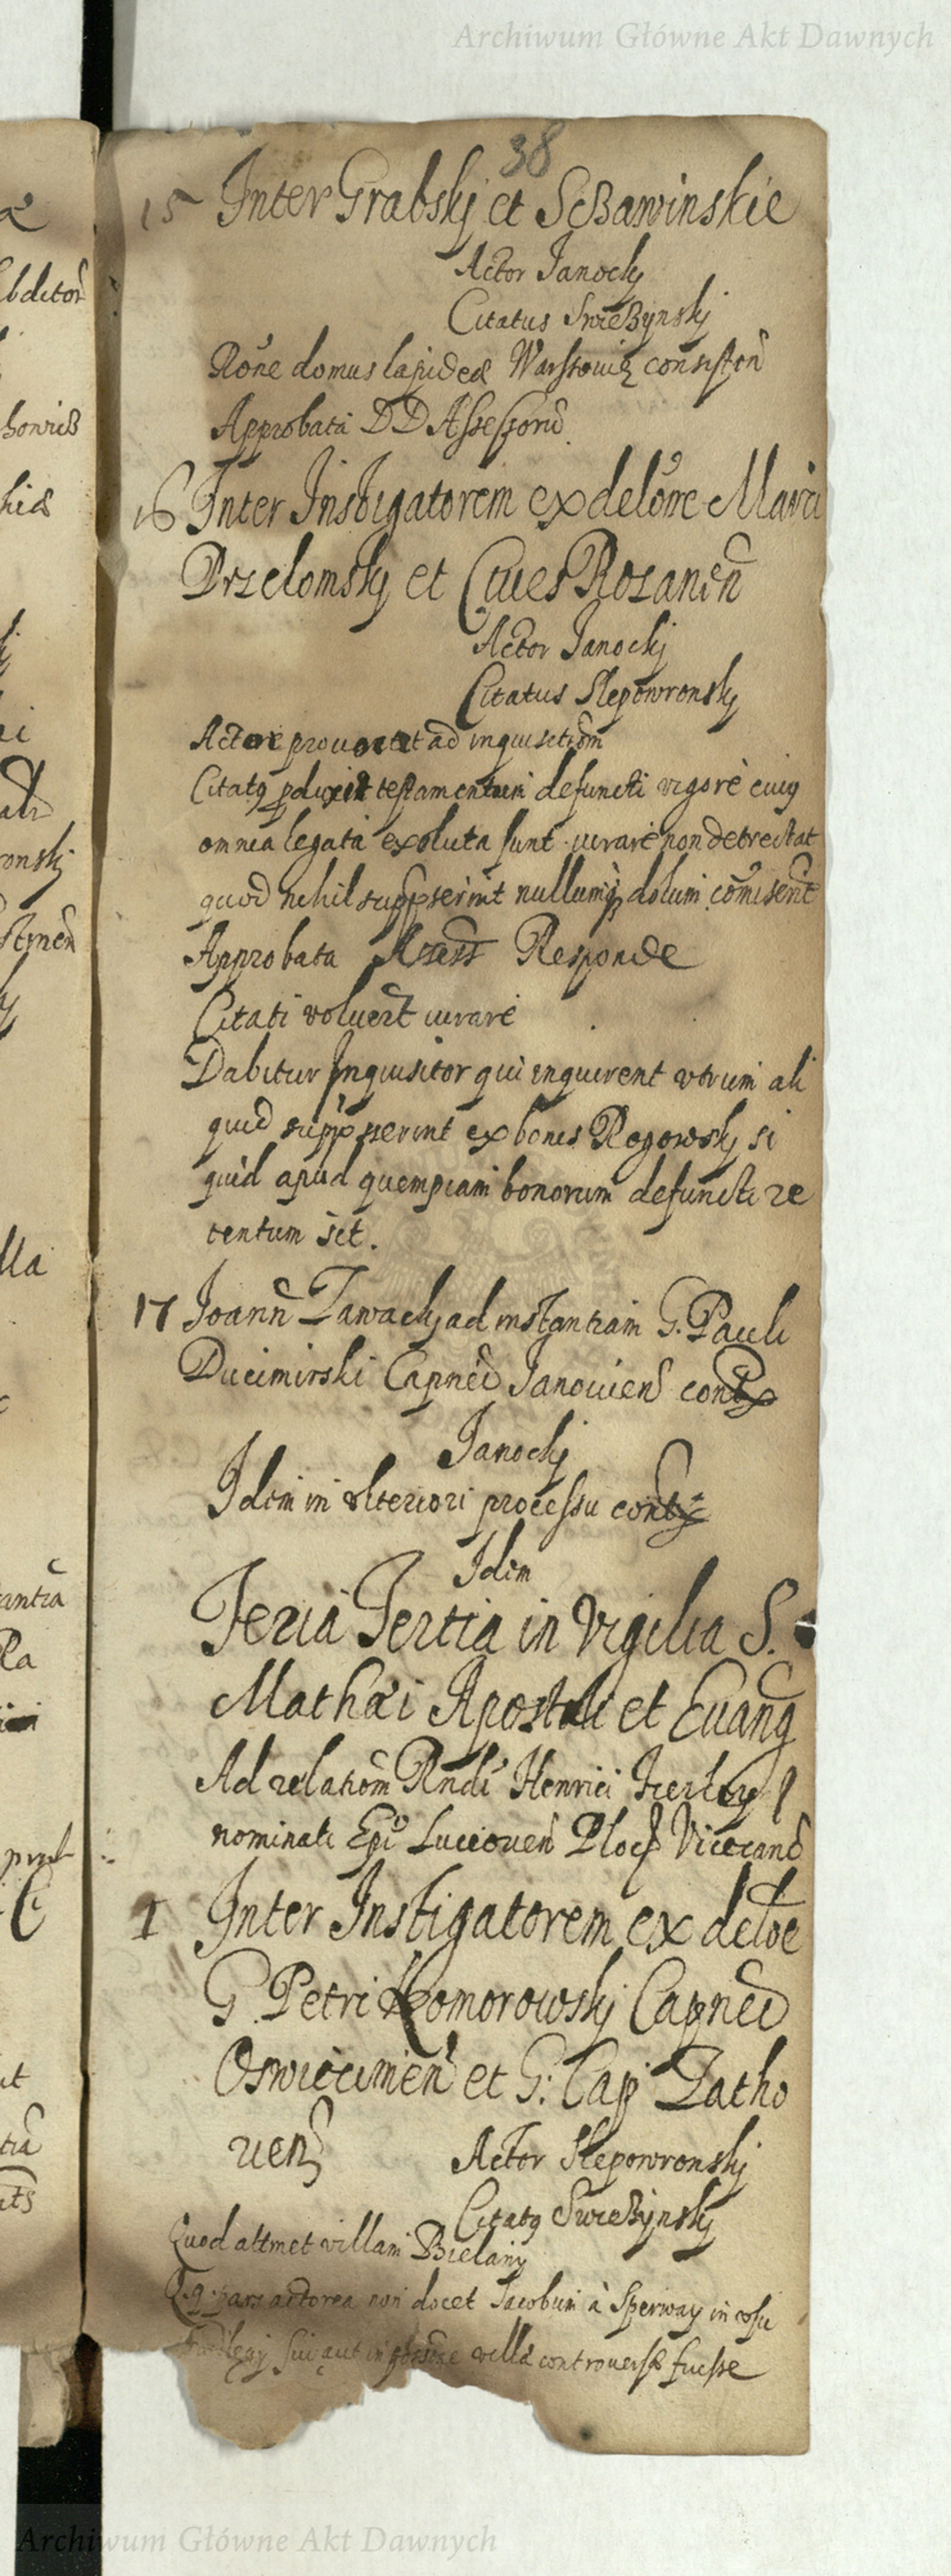 Archiwum Główne Akt Dawnych
38
15 Inter Grabskj et Scßawinskie
Actor Janockj
Citatus Swießynskj
Rone domus lapideæ Warssouiæ consisten
Approbata DD Assessoru
16 Inter Instigatorem ex delone Marci
Przelomskj et Ciues Rozanen
Actor Janockj
Citatus Slepowronskj
Actore prouocat ad inquisitiom
Citatq pduxit testamentum defuncti vigore cuiq
omnia legata exoluta sunt iurare non detrectat
quod nihil suppserint nullumq dolum comiserit
Approbata Responde
Citati voluert iurare
Dabitur Inquisitor qui inquirent vtrum ali
quid suppsserint ex bonis Rogowskj si
quid apud quempiam bonorum defuncti re
tentum sit.
17 Joann Zawackj ad instantiam G. Pauli
Ducimirski Capnei Janouien contx
Janockj
Idem in vlteriori processu contx
Idem
Feria Tertia in Vigilia S.
Mathæi Apostoli et Euang
Ad relatiom Rndi Henrici Firley
nominati Epi Luceouen Ploc Vicecanc
1 Inter Instigatorem ex delōe
G. Petri Komorowskj Capnei
Oswiecimen et G. Cap Zatho
uen
Actor Slepowronskj
Citatq Swießynskj
Quod attinet villam Bielany
pars actorea non docet Jacobum à Sperway in vsu
sui aut in villæ controuersæ fuisse
Archiwum Główne Akt Dawnych